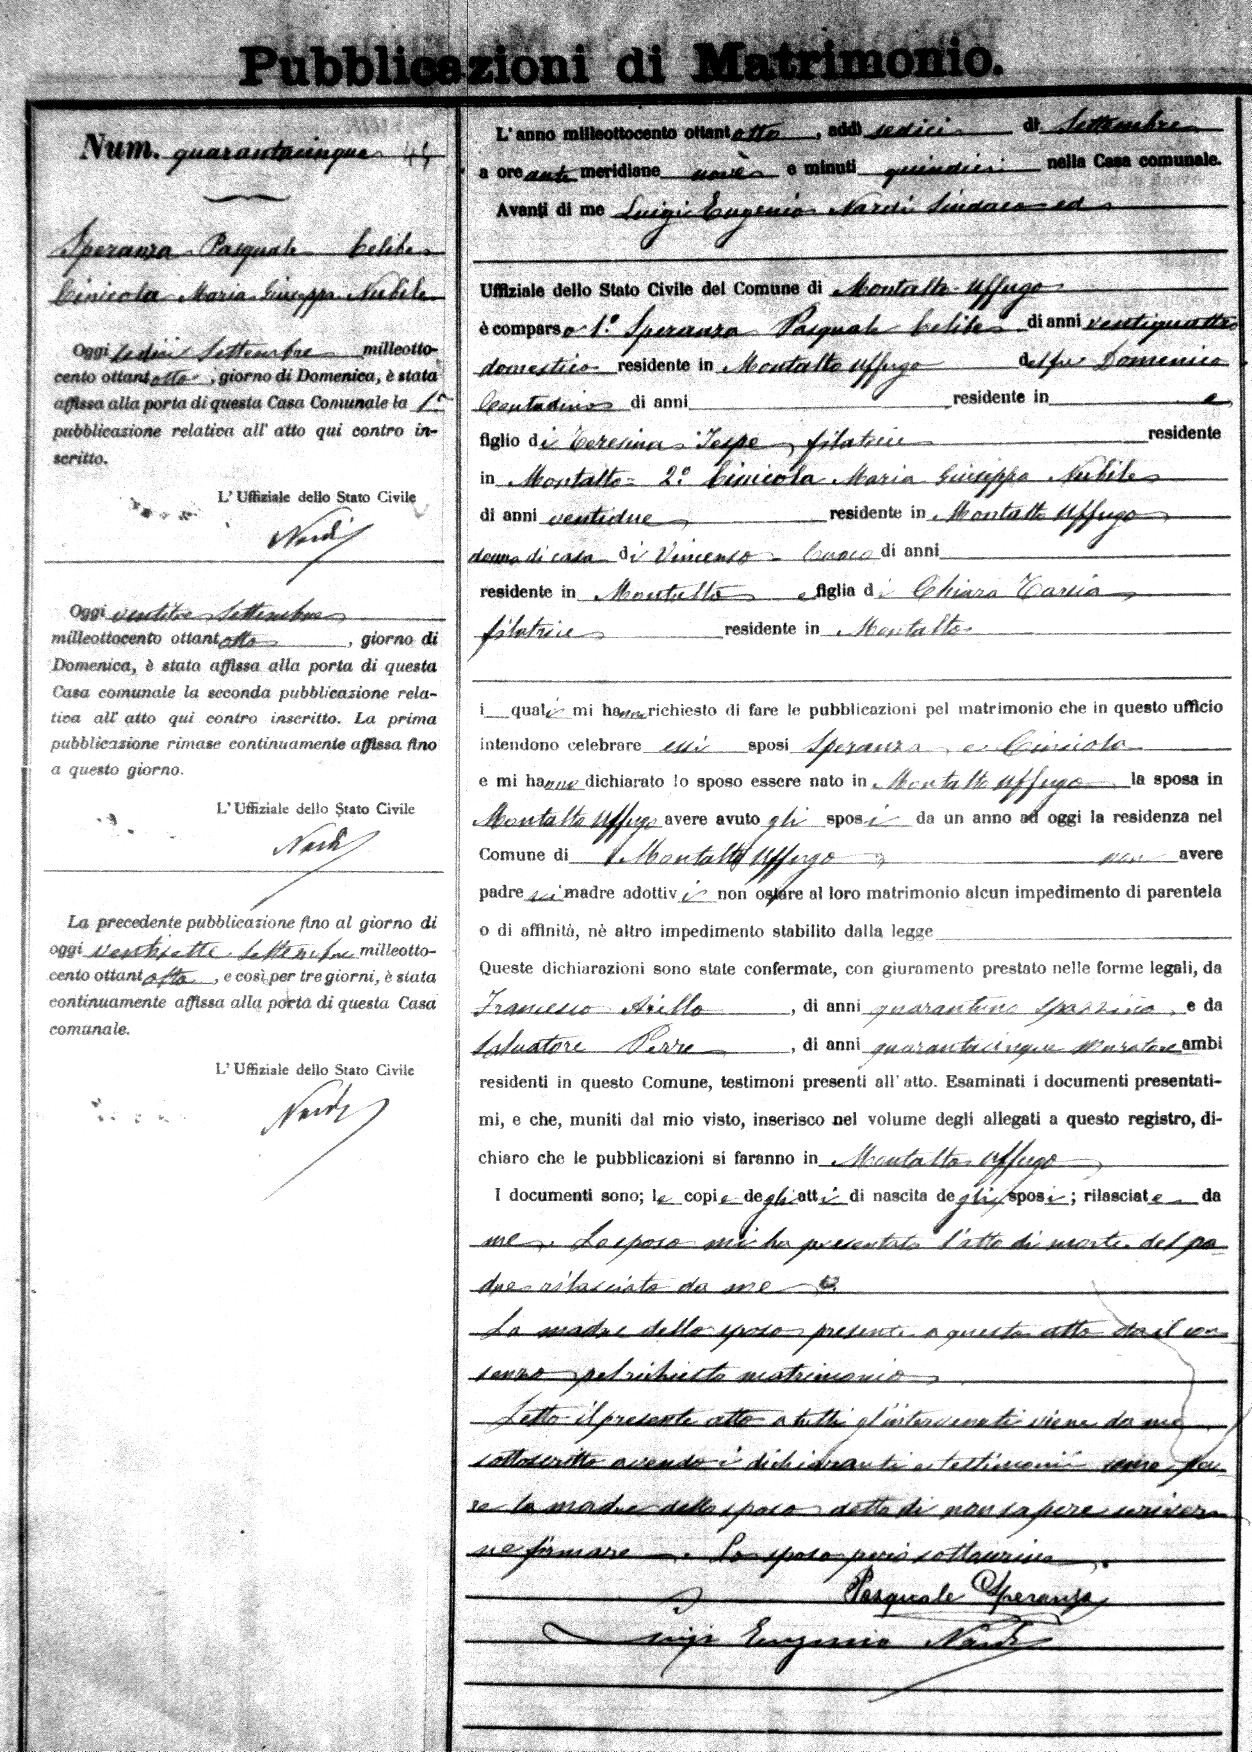 Pubblicazioni di Matrimonio.
Num. quarantacinque 45
Speranza Pasquale Celibe
Cinicola Maria Giuseppa Nubile
Oggi sedici Settembre milleotto-
cento ottantotto, giorno di Domenica, è stata
affissa alla porta di questa Casa Comunale la 1a
pubblicazione relativa all' atto qui contro in-
scritto.
L' Uffiziale dello Stato Civile
Nardi
Oggi ventitre Settembre
milleottocento ottantotto, giorno di
Domenica, è stata affissa alla porta di questa
Casa comunale la seconda pubblicazione rela-
tiva all' atto qui contro inscritto. La prima
pubblicazione rimase continuamente affissa fino
a questo giorno.
L' Uffiziale dello Stato Civile
Nardi
La precedente pubblicazione fino al giorno di
oggi ventisette Settembre milleotto-
cento ottantotto, e così per tre giorni, è stata
continuamente affissa alla porta di questa Casa
comunale.
L' Uffiziale dello Stato Civile
Nardi
L' anno milleottocento ottantotto, addì sedici di Settembre
a ore anti meridiane nove e minuti quindici nella Casa comunale.
Avanti di me Luigi Eugenio Nardi Sindaco ed
Uffiziale dello Stato Civile del Comune di Montalto Uffugo
è comparso 1.° Speranza Pasquale Celibe di anni ventiquattro
domestico residente in Montalto Uffugo del fu Domenico
Contadino di anni residente in e
figlio di Teresina filatrice residente
in Montalto = 2.° Cinicola Maria Giuseppa Nubile
di anni ventidue residente in Montalto Uffugo
donna di casa di Vincenzo Cuoco di anni
residente in Montalto e figlia di Chiara Tarsia
filatrice residente in Montalto
i quali mi hanno richiesto di fare le pubblicazioni pel matrimonio che in questo ufficio
intendono celebrare essi sposi Speranza e Cinicola
e mi hanno dichiarato lo sposo essere nato in Montalto Uffugo la sposa in
Montalto Uffugo avere avuto gli sposi da un anno ad oggi la residenza nel
Comune di Montalto Uffugo non avere
padre nè madre adottivi non ostare al loro matrimonio alcun impedimento di parentela
o di affinità, nè altro impedimento stabilito dalla legge
Queste dichiarazioni sono state confermate, con giuramento prestato nelle forme legali, da
Francesco Aiello, di anni quarantuno spazzino, e da
Salvatore Perre, di anni quarantacinque muratore ambi
residenti in questo Comune, testimoni presenti all' atto. Esaminati i documenti presentati-
mi, e che, muniti dal mio visto, inserisco nel volume degli allegati a questo registro, di-
chiaro che le pubblicazioni si faranno in Montalto Uffugo
I documenti sono; le copie degli atti di nascita degli sposi; rilasciate da
me. Lo sposo mi ha presentato l'atto di morte del pa-
dre rilasciato da me
La madre dello sposo presente a questo atto da il con-
senzo pel richiesto matrimonio
Letto il presente atto a tutti gl'intervenuti viene da me
sottoscritto avendo i dichiaranti e testimonii come pu-
re la madre dello sposo detto di non sapere scrivere
ne firmare. Lo sposo però sottoscrive.
Pasquale Speranza
Luigi Eugenio Nardi